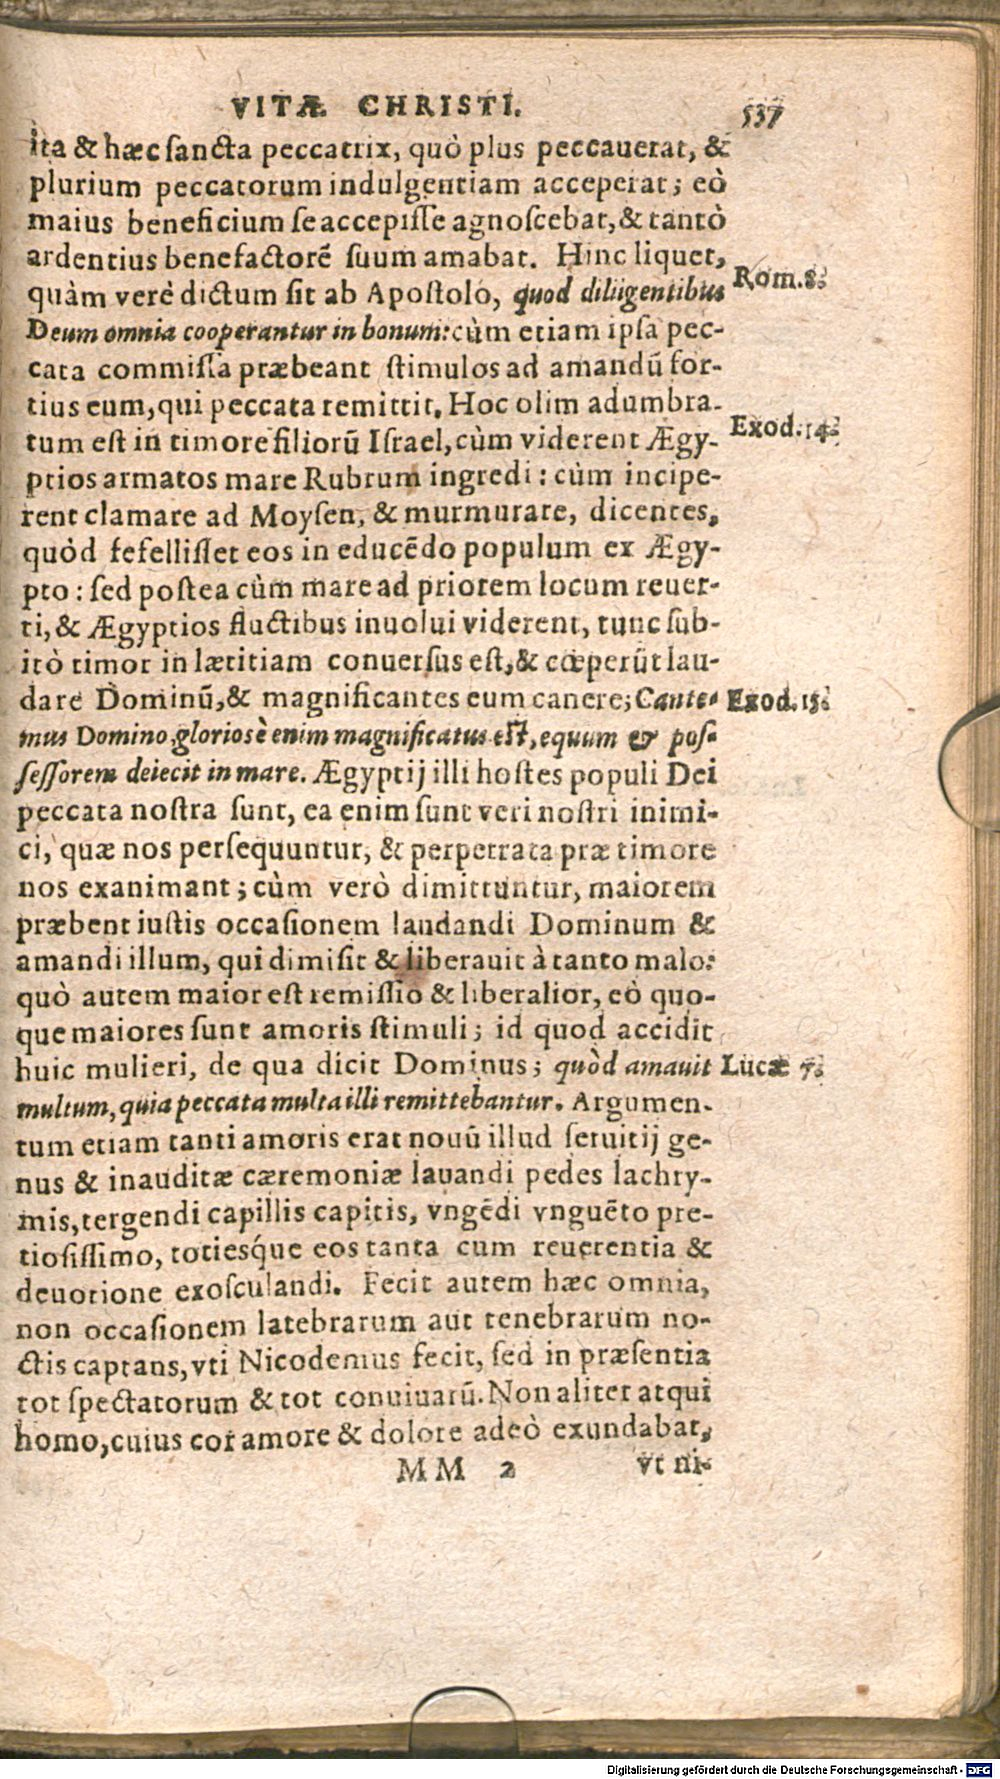 VITÆ CHRISTI. 537
ita & hæc sancta peccatrix, quò plus peccauerat, &
plurium peccatorum indulgentiam acceperat; eò
maius beneficium se accepisse agnoscebat, & tantò
ardentius benefactorē suum amabat. Hinc liquet,
quàm verè dictum sit ab Apostolo, quod diligentibus
Rom. 8.
Deum omnia cooperantur in bonum: cùm etiam ipsa pec-
cata commissa præbeant stimulos ad amandū for-
tius eum, qui peccata remittit. Hoc olim adumbra-
tum est in timore filiorū Israel, cùm viderent Ægy-
Exod. 14.
ptios armatos mare Rubrum ingredi: cùm incipe-
rent clamare ad Moysen, & murmurare, dicentes,
quòd fefellisset eos in educēdo populum ex Ægy-
pto: sed postea cùm mare ad priorem locum reuer-
ti, & Ægyptios fluctibus inuolui viderent, tunc sub-
itò timor in lætitiam conuersus est, & cœperūt lau-
dare Dominū, & magnificantes eum canere; Cante-
Exod. 15.
mus Domino gloriosè enim magnificatus est, equum & pos-
sessorem deiecit in mare. Ægyptij illi hostes populi Dei
peccata nostra sunt, ea enim sunt veri nostri inimi-
ci, quæ nos persequuntur, & perpetrata præ timore
nos exanimant; cùm verò dimittuntur, maiorem
præbent iustis occasionem laudandi Dominum &
amandi illum, qui dimisit & liberauit à tanto malo:
quò autem maior est remissio & liberalior, eò quo-
que maiores sunt amoris stimuli; id quod accidit
huic mulieri, de qua dicit Dominus; quòd amauit
Lucæ 7.
multum, quia peccata multa illi remittebantur. Argumen-
tum etiam tanti amoris erat nouū illud seruitij ge-
nus & inauditæ cæremoniæ lauandi pedes lachry-
mis, tergendi capillis capitis, vngēdi vnguēto pre-
tiosissimo, totiesq́ue eos tanta cum reuerentia &
deuotione exosculandi. Fecit autem hæc omnia,
non occasionem latebrarum aut tenebrarum no-
ctis captans, vti Nicodemus fecit, sed in præsentia
tot spectatorum & tot conuiuarū. Non aliter atqui
homo, cuius cor amore & dolore adeò exundabat,
MM 2 vt ni-
Digitalisierung gefördert durch die Deutsche Forschungsgemeinschaft - DFG